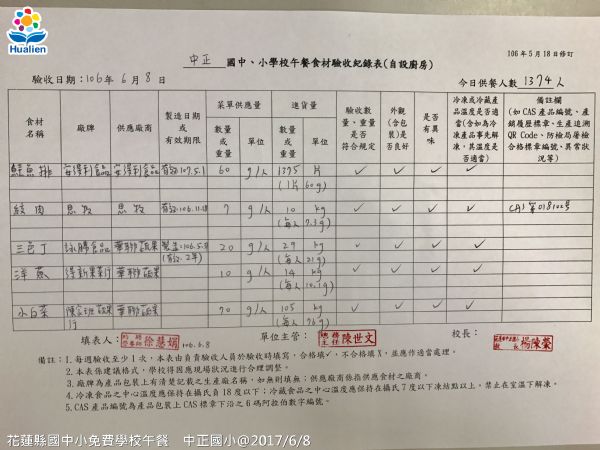 Hualien
106年5月18日修訂
中正 國中、小學校午餐食材驗收紀錄表(自設廚房)
驗收日期:106年6月8日
今日供餐人數1374人
食材名稱 廠牌 供應廠商 製造日期或有效期限 菜單供應量 進貨量 驗收數量、重量是否符合規定 外觀(含包裝)是否良好 是否有異味 冷凍或冷藏產品溫度是否適當(含如為冷凍產品事先解凍,其溫度是否適當) 備註欄(如CAS產品編號、產銷履歷標章、生產追溯QR Code、防檢局屠檢合格標章編號、異常狀況等)
數量或重量 單位 數量或重量 單位
鮭魚排 安得利食品 安得利食品 有效107.5.1 60 g/人 1375 片 ✓ ✓ ✓ ✓
(1片60g)
絞肉 思牧 思牧 有效106.11.18 7 g/人 10 kg ✓ ✓ ✓ ✓ CAS第018102號
(每人7.3g)
三色丁 詠勝食品 華聯蔬果 20 g/人 29 kg ✓ ✓ ✓ ✓
(有效2年) (每人21g)
洋蔥 華聯蔬果 10 g/人 14 kg ✓ ✓ ✓
(每人10.1g)
小白菜 華聯蔬果 70 g/人 105 kg ✓ ✓ ✓
行 (每人76g)
填表人: 徐慧娟 106.6.8 單位主管: 陳世文 校長: 楊陳榮
備註:1.每週驗收至少1次,本表由負責驗收人員於驗收時填寫,合格填✓,不合格填X,並應作適當處理。
2.本表係建議格式,學校得因應現場狀況進行合理調整。
3.廠牌為產品包裝上有清楚記載之生產廠名稱,如無則填無;供應廠商係指供應食材之廠商。
4.冷凍食品之中心溫度應保持在攝氏負18度以下;冷藏食品之中心溫度應保持在攝氏7度以下凍結點以上,禁止在室溫下解凍。
5.CAS產品編號為產品包裝上CAS標章下沿之6碼阿拉伯數字編號。
花蓮縣國中小免費學校午餐 中正國小@2017/6/8